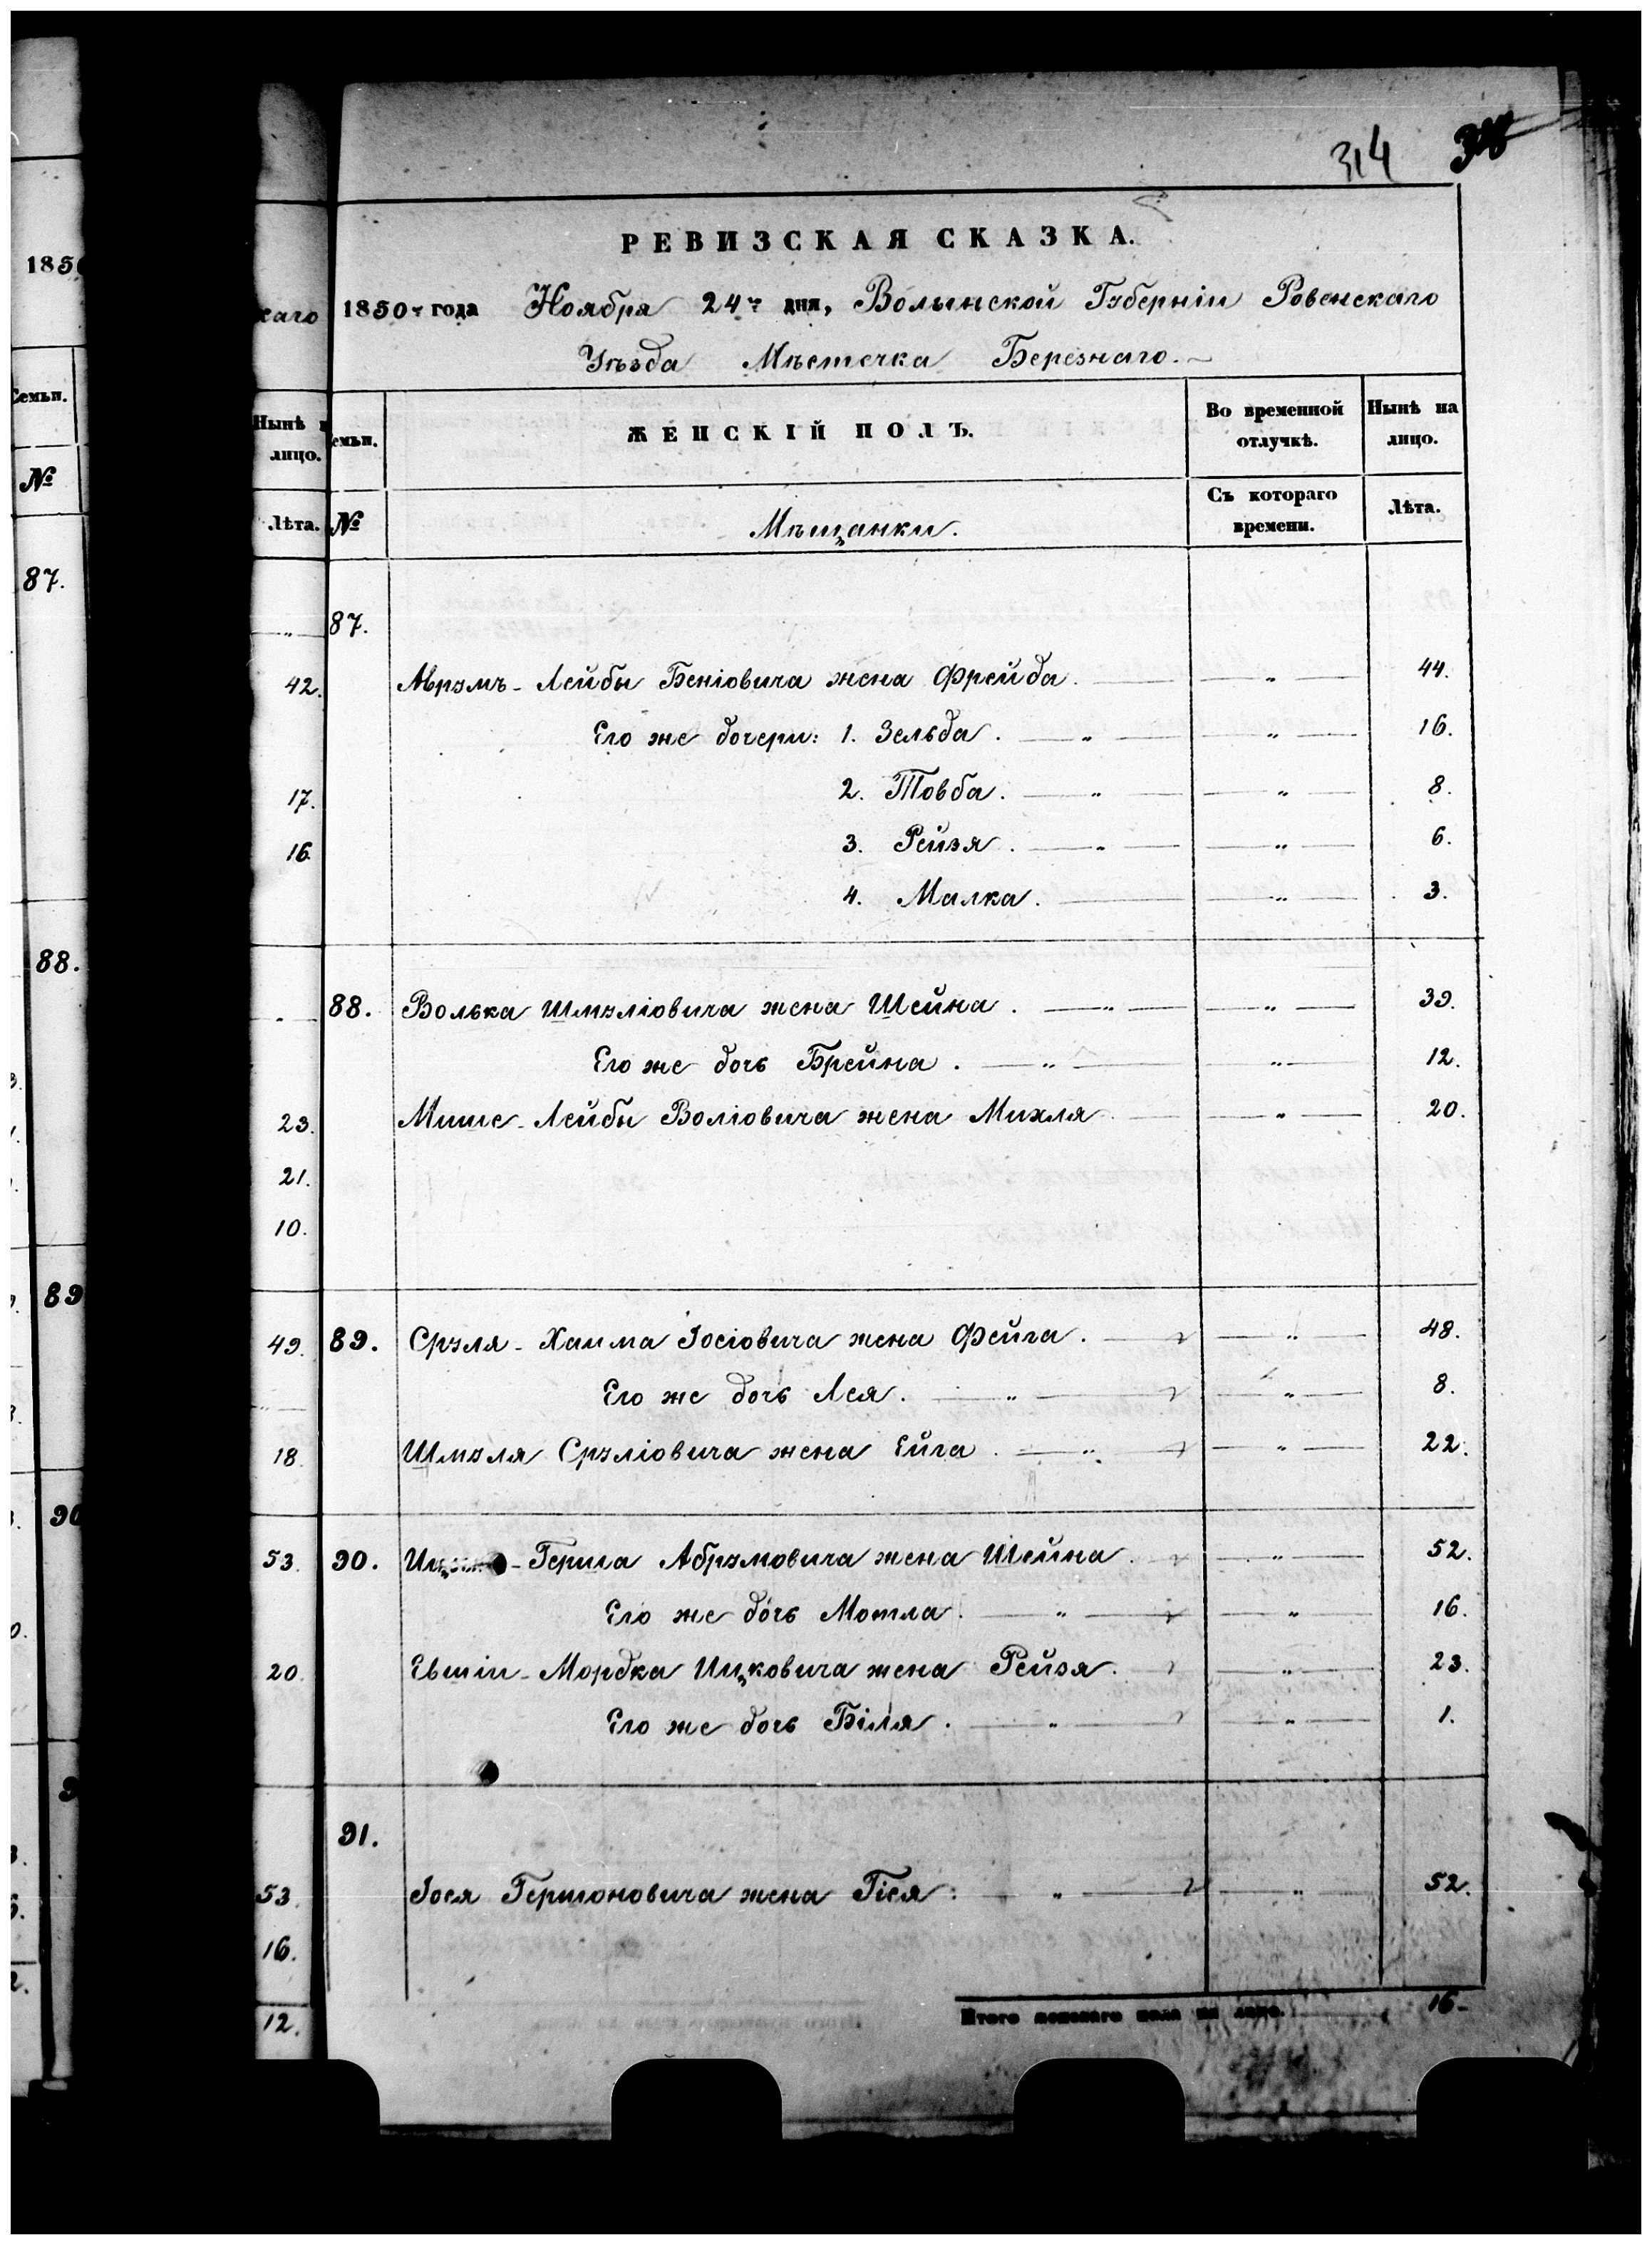 314
РЕВИЗСКАЯ СКАЗКА.
1850го года Ноября 24го дня, Волынской Губерніи Ровенскаго
Уѣзда Мѣстечка Березнаго.
каго
1850
Семьи.
Нынѣ
лицо.
емьи.
ЖЕНСКІЙ ПОЛЪ.
Во временной отлучкѣ.
Нынѣ на лицо.
№
Лѣта.
№
Мѣщанки.
Съ котораго времени.
Лѣта.
87.
87.
42. Аврумъ-Лейбы Беніовича жена Фрейда. — „ — 44.
Его же дочери: 1. Зельда. — „ — „ — 16.
17. 2. Товба. — „ — „ — 8.
16. 3. Рейзя. — „ — „ — 6.
4. Малка. — „ — 3.
88.
88. Волька Шмуліовича жена Шейна. — „ — „ — 39.
Его же дочь Брейна. — „ — „ — 12.
23. Мише-Лейбы Воліовича жена Михля — „ — 20.
21.
10.
89
49. 89. Сруля-Хаима Іосіовича жена Фейга. — „ — 48.
Его же дочь Лея. — „ — „ — 8.
18. Шмуля Сруліовича жена Ейга. — „ — „ — 22.
90
53. 90. Герша Абрумовича жена Шейна. — „ — 52.
Его же дочь Мотла. — „ — „ — 16.
20. Евшіи-Мордка Ицковича жена Рейзя. — „ — 23.
Его же дочь Біля. — „ — „ — 1.
91.
53. Іося Гершоновича жена Гіся: — „ — „ — 52.
16.
Итого женскаго пола на лицо. 16-
12.